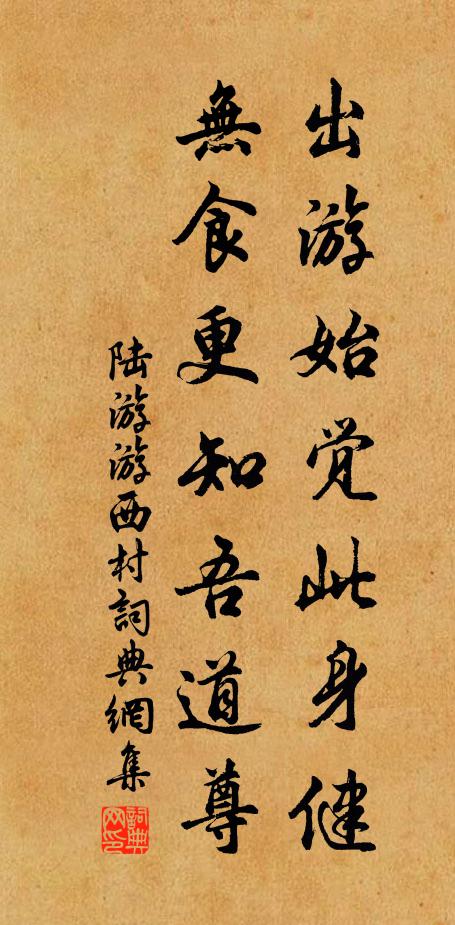 出游始觉此身健
無食更知吾道尊
陆游游西村詞典網集
詞典
网印